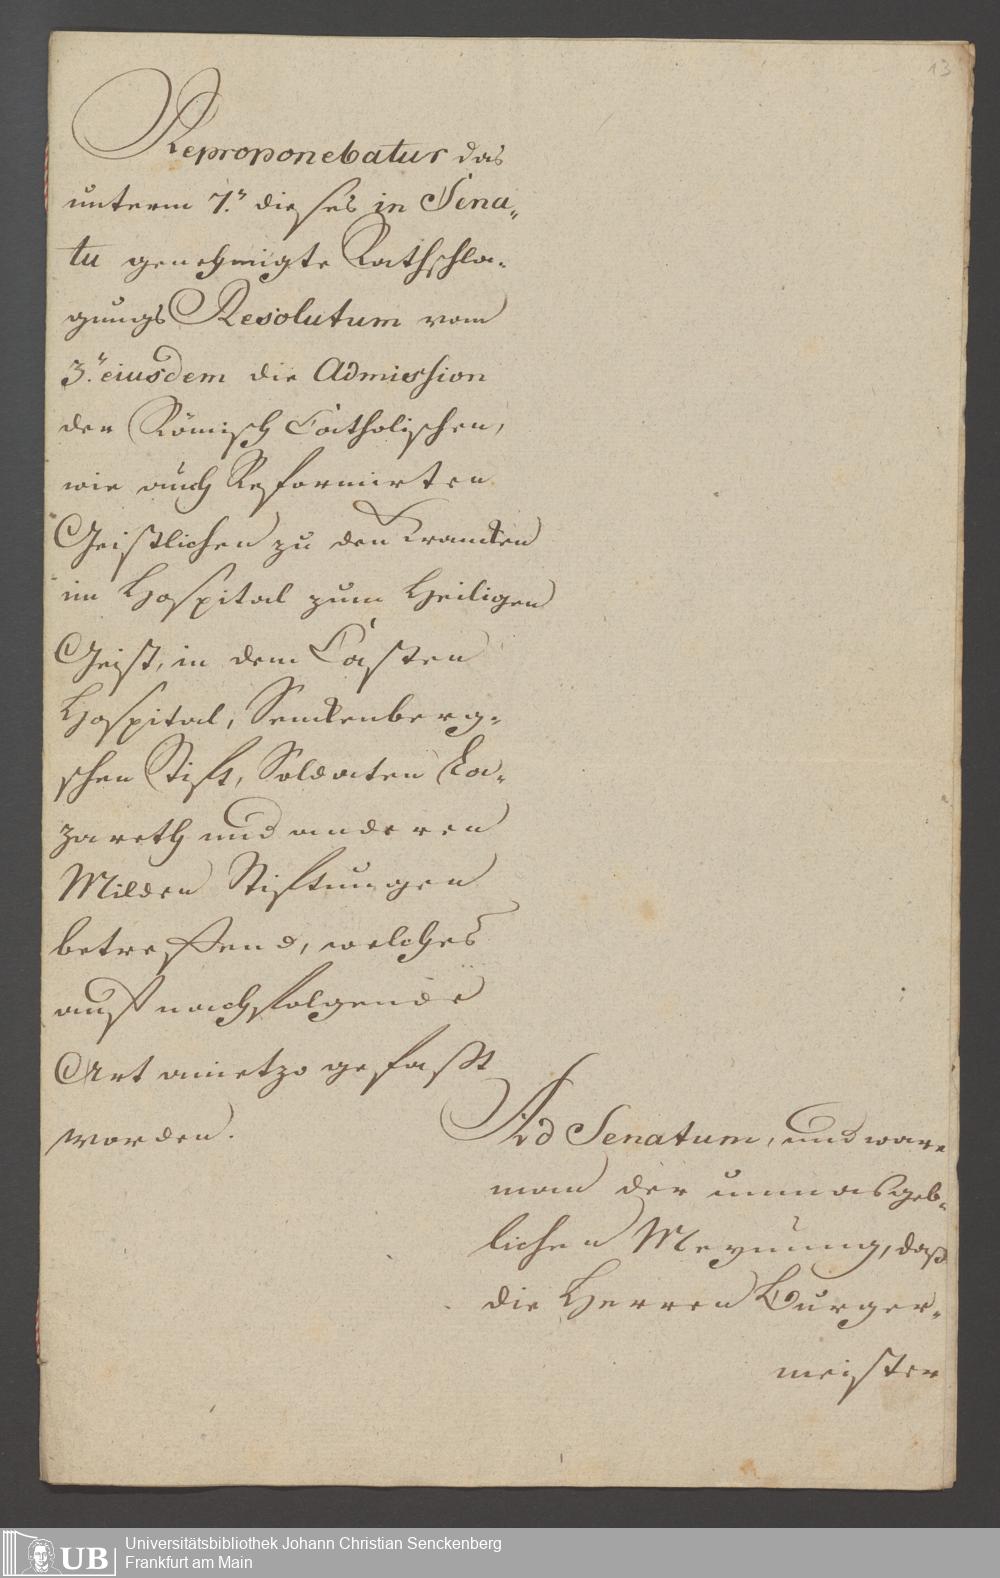 13
Reproponebatur das
unterm 7.n dieses in Sena„
tu genehmigte Rathschla„
gungs Resolutum vom
3.n eiusdem die Admission
der Römisch Catholischen,
wie auch Reformirten
Geistlichen zu den Krancken
im Hospital zum Heiligen
Geist, in dem Casten
Hospital, Senckenberg„
schen Stift, Soldaten La„
zareth und anderen
Milden Stiftungen
betreffend, welches
auf nachfolgende
Art anietzo gefasst
worden.
Ad Senatum, und ware
man der unmasgeb„
lichen Meynung, daß
die Herren Burger„
meister
UB
Universitätsbibliothek Johann Christian Senckenberg
Frankfurt am Main